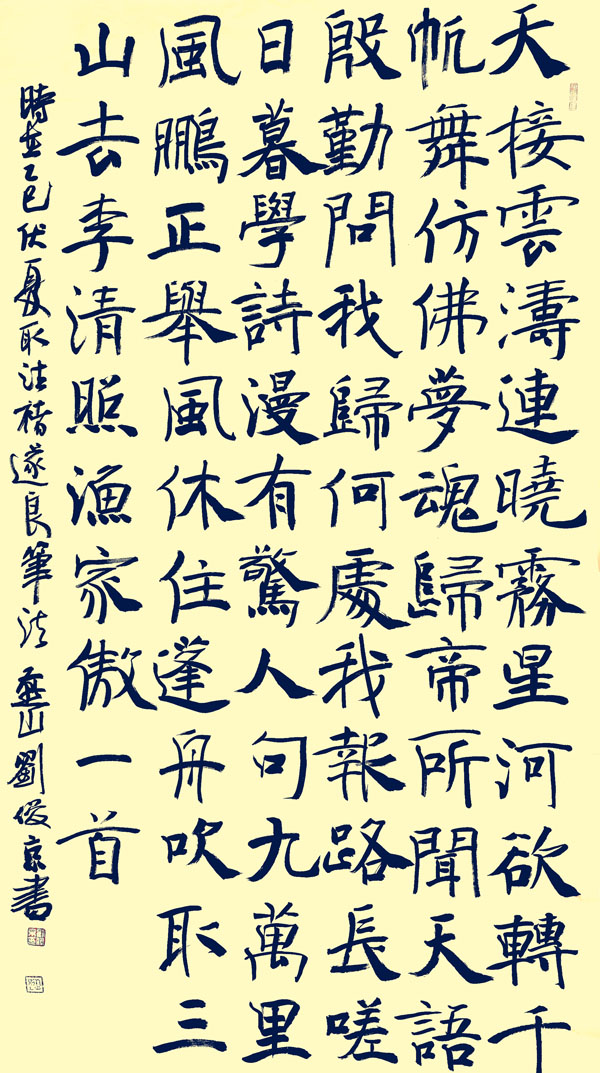 天接雲濤連曉霧星河欲轉千
帆舞仿佛夢魂歸帝所聞天語
殷勤問我歸何處我報路長嗟
日暮學詩漫有驚人句九萬里
風鵬正舉風休住蓬舟吹取三
山去李清照漁家傲一首
時在乙巳伏夏取法褚遂良筆法 劉俊京書